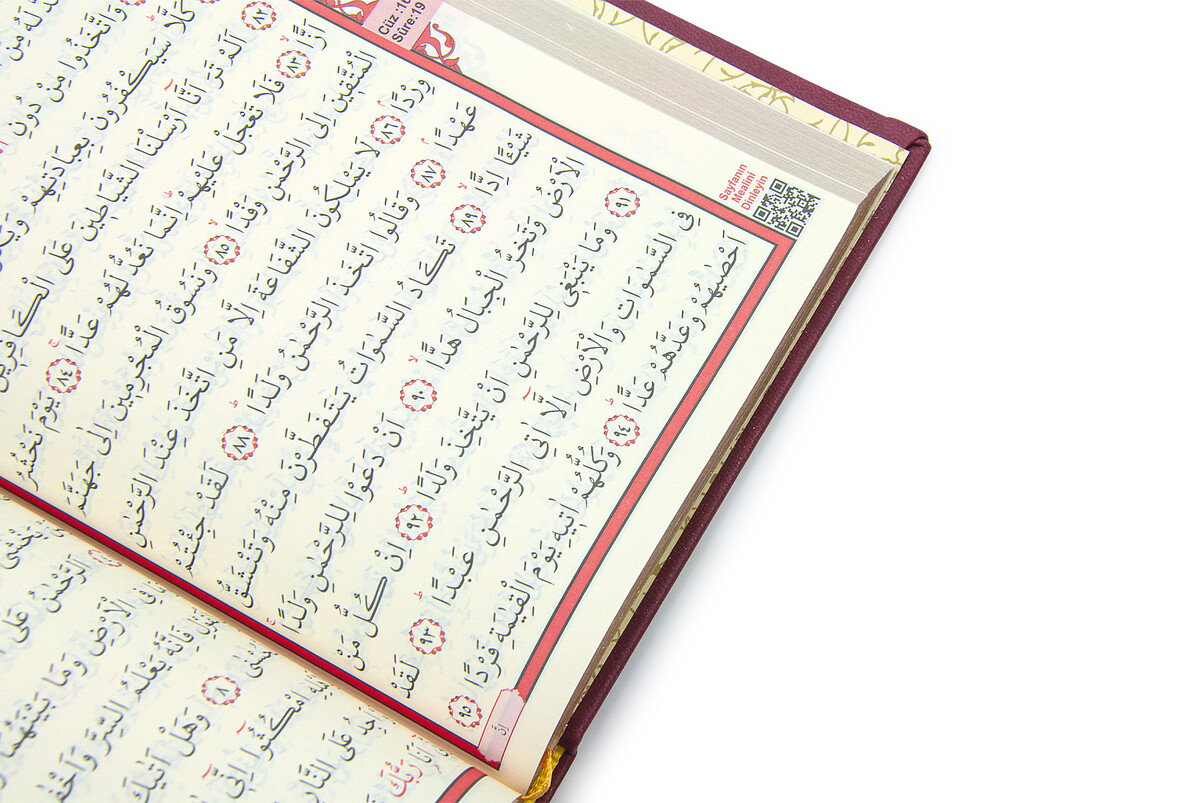 Cüz :16
Sûre:19
وَاتَّخَذُوا مِنْ دُونِ
كَلَّا سَيَكْفُرُونَ بِعِبَادَتِهِمْ
٨٢ اَلَمْ تَرَ اَنَّٓا اَرْسَلْنَا الشَّيَاط۪ينَ عَلَى الْكَافِر۪ينَ
اَزًّاۙ ٨٣ فَلَا تَعْجَلْ عَلَيْهِمْۜ اِنَّمَا نَعُدُّ لَهُمْ عَدًّاۚ ٨٤ يَوْمَ نَحْشُرُ
الْمُتَّق۪ينَ اِلَى الرَّحْمٰنِ وَفْدًاۙ ٨٥ وَنَسُوقُ الْمُجْرِم۪ينَ اِلٰى جَهَنَّمَ
وِرْدًاۢ ٨٦ لَا يَمْلِكُونَ الشَّفَاعَةَ اِلَّا مَنِ اتَّخَذَ عِنْدَ الرَّحْمٰنِ
عَهْدًاۢ ٨٧ وَقَالُوا اتَّخَذَ الرَّحْمٰنُ وَلَدًاۜ ٨٨ لَقَدْ جِئْتُمْ
شَيْـًٔا اِدًّاۙ ٨٩ تَكَادُ السَّمٰوَاتُ يَتَفَطَّرْنَ مِنْهُ وَتَنْشَقُّ
الْاَرْضُ وَتَخِرُّ الْجِبَالُ هَدًّاۙ ٩٠ اَنْ دَعَوْا لِلرَّحْمٰنِ وَلَدًاۚ
٩١ وَمَا يَنْبَغ۪ي لِلرَّحْمٰنِ اَنْ يَتَّخِذَ وَلَدًاۜ ٩٢ اِنْ كُلُّ مَنْ
فِي السَّمٰوَاتِ وَالْاَرْضِ اِلَّٓا اٰتِي الرَّحْمٰنِ عَبْدًاۜ ٩٣ لَقَدْ
اَحْصٰيهُمْ وَعَدَّهُمْ عَدًّاۜ ٩٤ وَكُلُّهُمْ اٰت۪يهِ يَوْمَ الْقِيٰمَةِ فَرْدًا ٩٥
Sayfanın
Mealini
Dinleyin
الرَّحْمٰنُ عَلَى
الْاَرْضِ وَمَا بَيْنَهُمَا
فَاِنَّهُ يَعْلَمُ السِّرَّ وَاَخْفٰى
٨ وَهَلْ اَتٰيكَ
امْكُثُٓوا اِنّ۪ٓي
عَلَى النَّارِ
رَبُّكَ